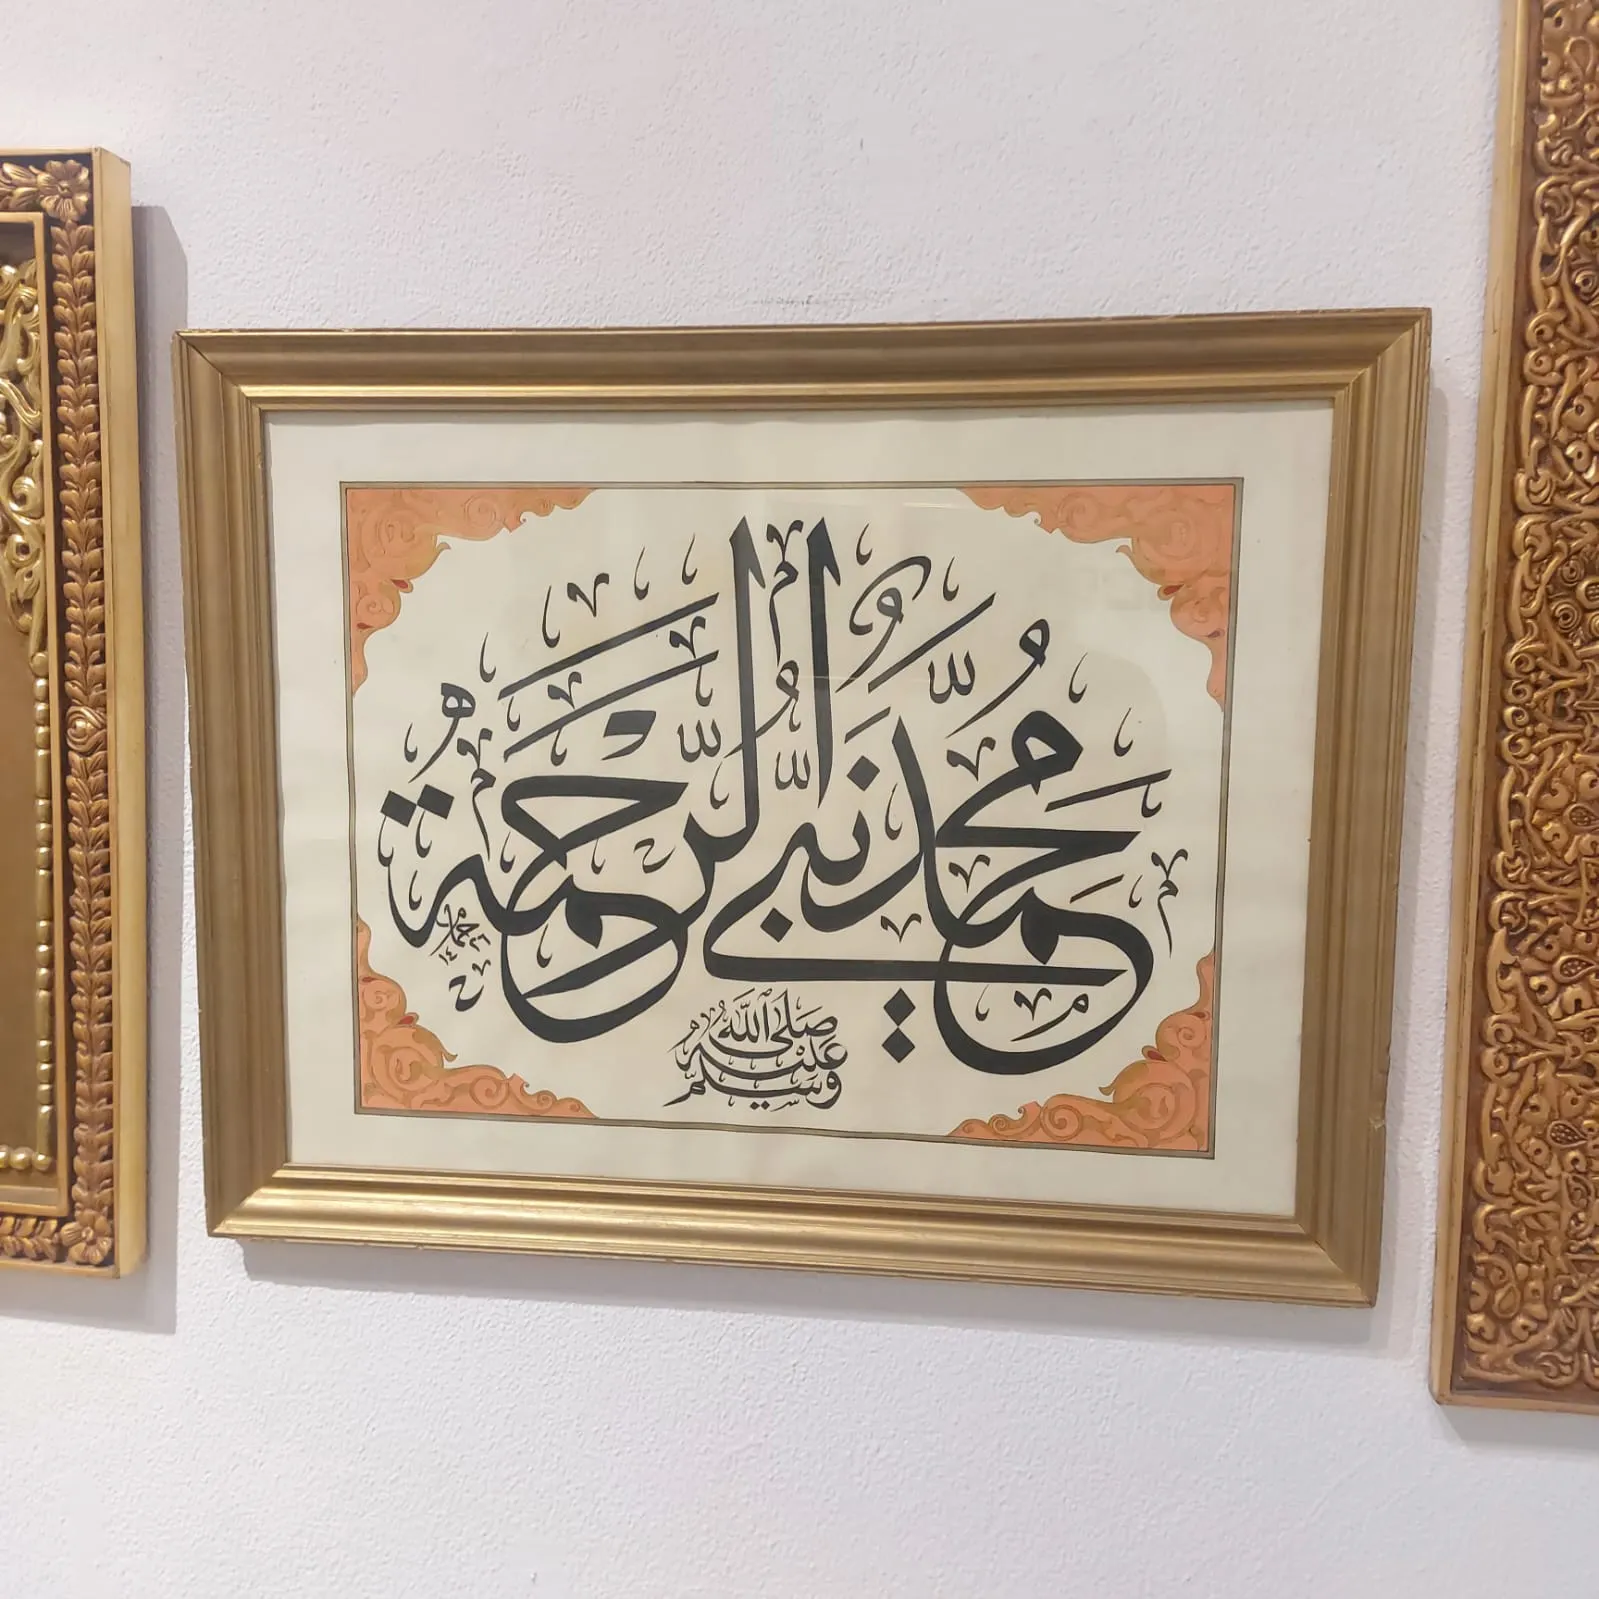 مُحَمَّدٌ نَبِيُّ الرَّحْمَةِ
صَلَى اللَّه
عَلَيْهِ
وَسَلَّم